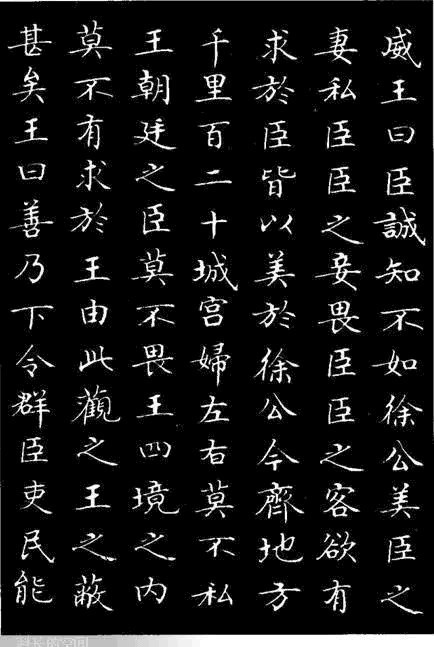 威王曰臣誠知不如徐公美臣之
妻私臣臣之妾畏臣臣之客欲有
求於臣皆以美於徐公今齊地方
千里百二十城宮婦左右莫不私
王朝廷之臣莫不畏王四境之内
莫不有求於王由此觀之王之蔽
甚矣王曰善乃下令群臣吏民能